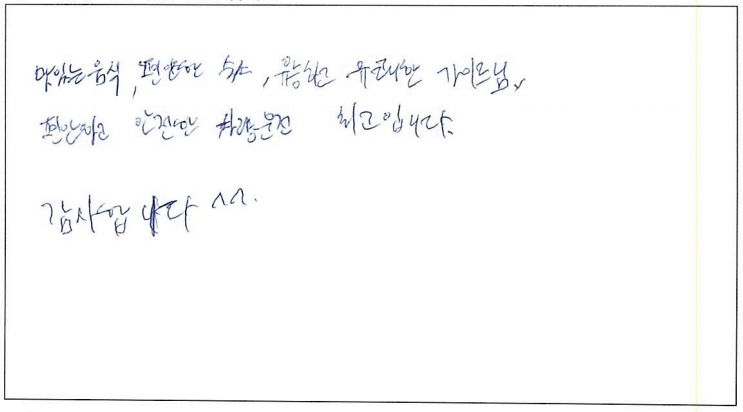 맛있는음식, 편안한 숙소, 유능하고 유쾌한 가이드님,
편안하고 안전한 차량운전 최고입니다.
감사합니다 ^^.